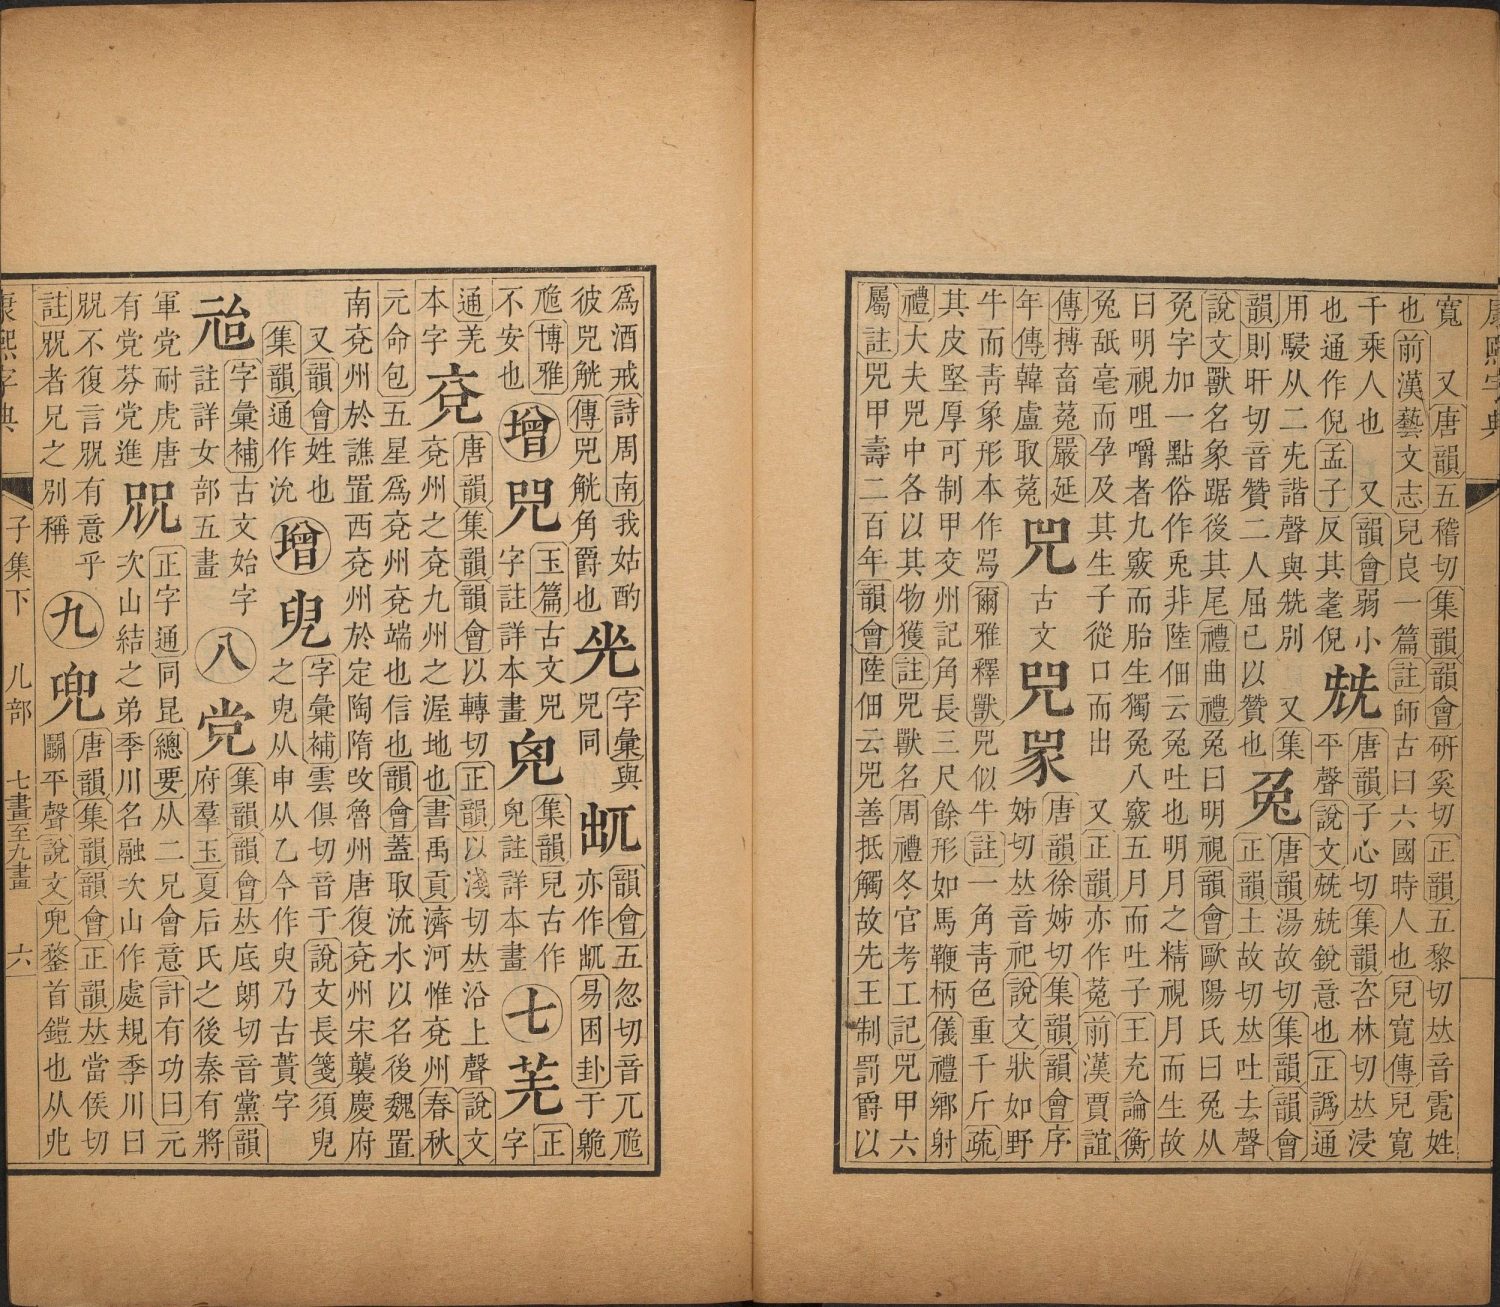 寬　又唐韻五稽切集韻韻會硏奚切正韻五黎切𠀤音霓姓
也前漢藝文志兒良一篇註師古曰六國時人也兒寬傳兒寬
千乘人也　又韻會弱小
也通作倪孟子反其耄倪
兓
唐韻子心切集韻咨林切𠀤浸
平聲說文兓兓銳意也正譌通
用駸从二兂諧聲與兟別　又集
韻則旰切音贊二人屈已以贊也
兔
唐韻湯故切集韻韻會
正韻土故切𠀤吐去聲
說文獸名象踞後其尾禮曲禮兔曰明視韻會歐陽氏曰兔从
免字加一點俗作兎非陸佃云兔吐也明月之精視月而生故
曰明視咀嚼者九竅而胎生獨兔八竅五月而吐子王充論衡
兔舐毫而孕及其生子從口而出　又正韻亦作菟前漢賈誼
傳搏畜菟嚴延
年傳韓盧取菟
兕
古文
唐韻徐姊切集韻韻會序
姊切𠀤音祀說文狀如野
牛而靑象形本作爾雅釋獸兕似牛註一角靑色重千斤疏
其皮堅厚可制甲交州記角長三尺餘形如馬鞭柄儀禮鄕射
禮大夫兕中各以其物獲註兕獸名周禮冬官考工記兕甲六
屬註兕甲壽二百年韻會陸佃云兕善抵觸故先王制罰爵以
爲酒戒詩周南我姑酌
彼兕觥傳兕觥角爵也
字彙與
兕同
韻會五忽切音兀卼
亦作易困卦于臲
卼博雅
不安也
增
玉篇古文兕
字註詳本畫
集韻兒古作
註詳本畫
七
羌
正
字
通羌
本字
兗
唐韻集韻韻會以轉切正韻以淺切𠀤沿上聲說文
兗州之兗九州之渥地也書禹貢濟河惟兗州春秋
元命包五星爲兗州兗端也信也韻會蓋取流水以名後魏置
南兗州於譙置西兗州於定陶隋改魯州唐復兗州宋襲慶府
又韻會姓也
集韻通作沇
增
字彙補雲俱切音于說文長箋須臾
之臾从申从乙今作臾乃古蕢字
字彙補古文始字
註詳女部五畫
八
党
集韻韻會𠀤底朗切音黨韻
府羣玉夏后氏之後秦有將
軍党耐虎唐
有党芬党進
正字通同昆總要从二兄會意計有功曰元
次山結之弟季川名融次山作處規季川曰
不復言有意乎
註者兄之別稱
九
兜
唐韻集韻韻會正韻𠀤當侯切
鬭平聲說文兜鍪首鎧也从
康熙字典
子集下　儿部　七畫至九畫　六